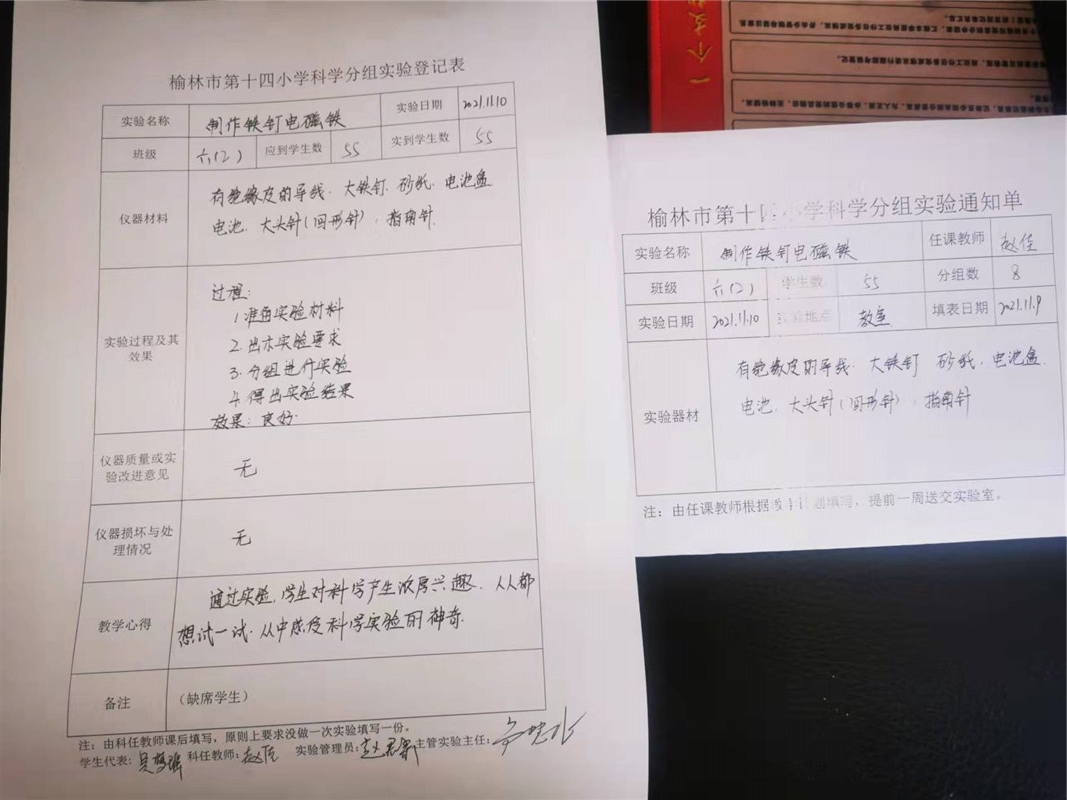 榆林市第十四小学科学分组实验登记表
实验名称 制作铁钉电磁铁 实验日期 2021.11.10
班级 六(2) 应到学生数 55 实到学生数 55
仪器材料
有绝缘皮的导线. 大铁钉. 砂纸. 电池盒
电池. 大头针(回形针), 指南针.
实验过程及其
效果
过程:
1.准备实验材料
2.出示实验要求
3.分组进行实验
4.得出实验结果
效果: 良好.
仪器质量或实
验改进意见
无
仪器损坏与处
理情况
无
教学心得
通过实验, 学生对科学产生浓厚兴趣. 人人都
想试一试. 从中感受科学实验的神奇.
备注 (缺席学生)
注:由科任教师课后填写,原则上要求没做一次实验填写一份。
学生代表: 科任教师:赵佳 实验管理员: 主管实验主任:
一个支
榆林市第十四小学科学分组实验通知单
实验名称 制作铁钉电磁铁 任课教师 赵佳
班级 六(2) 学生数 55 分组数 8
实验日期 2021.11.10 实验地点 教室 填表日期 2021.11.9
实验器材
有绝缘皮的导线. 大铁钉 砂纸. 电池盒.
电池. 大头针(回形针), 指南针
注:由任课教师根据教学计划填写,提前一周送交实验室。